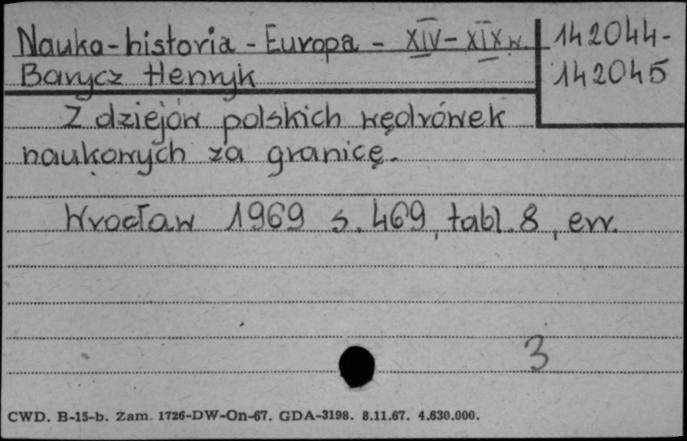 Nauka-historia - Europa - XIV- XIX w. 142044-
Barycz Henryk 142045
Z dziejów polskich wędrówek
naukowych za granicę.
Wrocław 1969 s. 469, tabl. 8, err.
3
CWD. B-15-b. Zam. 1726-DW-On-67. GDA-3198. 8.11.67. 4.630.000.